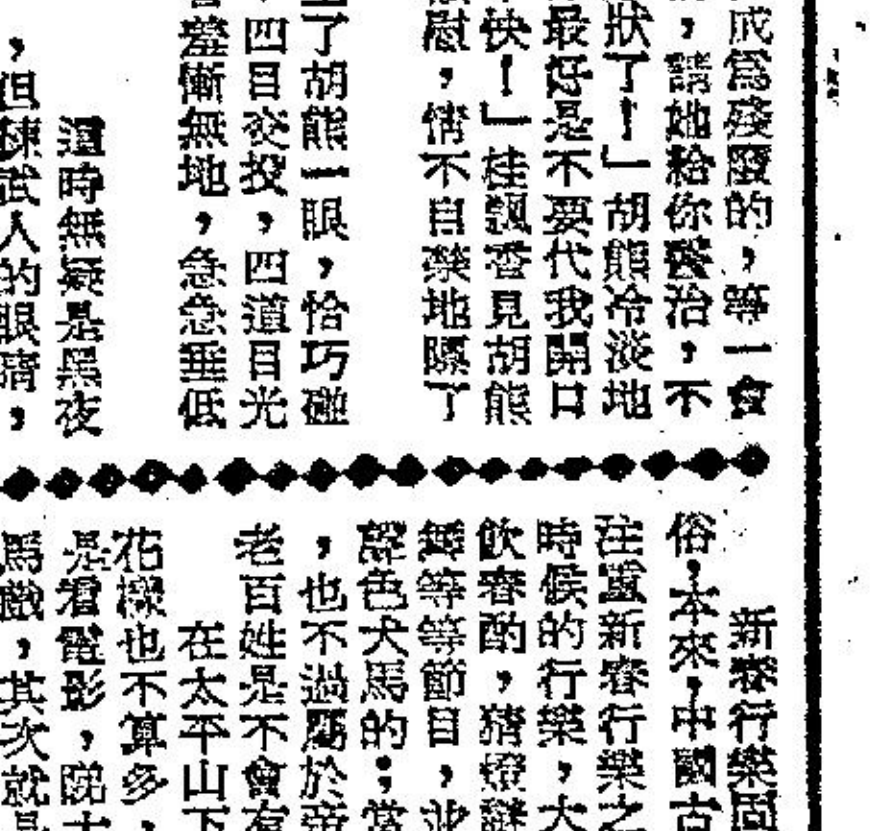 成爲殘廢的，等一會
，請她給你醫治，不
狀了！」胡熊冷淡地
最好是不要代我開口
快！」桂飄香見胡熊
慰，情不自禁地瞟了
了胡熊一眼，恰巧碰
四目交投，四道目光
羞慚無地，急急垂低
這時無疑是黑夜
，但練武人的眼睛，
新春行樂固
俗，本來，中國古
注重新春行樂之
時候的行樂，大
飲春酌，猜燈謎
舞等等節目，並
聲色犬馬的；當
，也不過屬於帝
老百姓是不會有
在太平山下
花樣也不算多，
是看電影，睇大
馬戲，其次就是